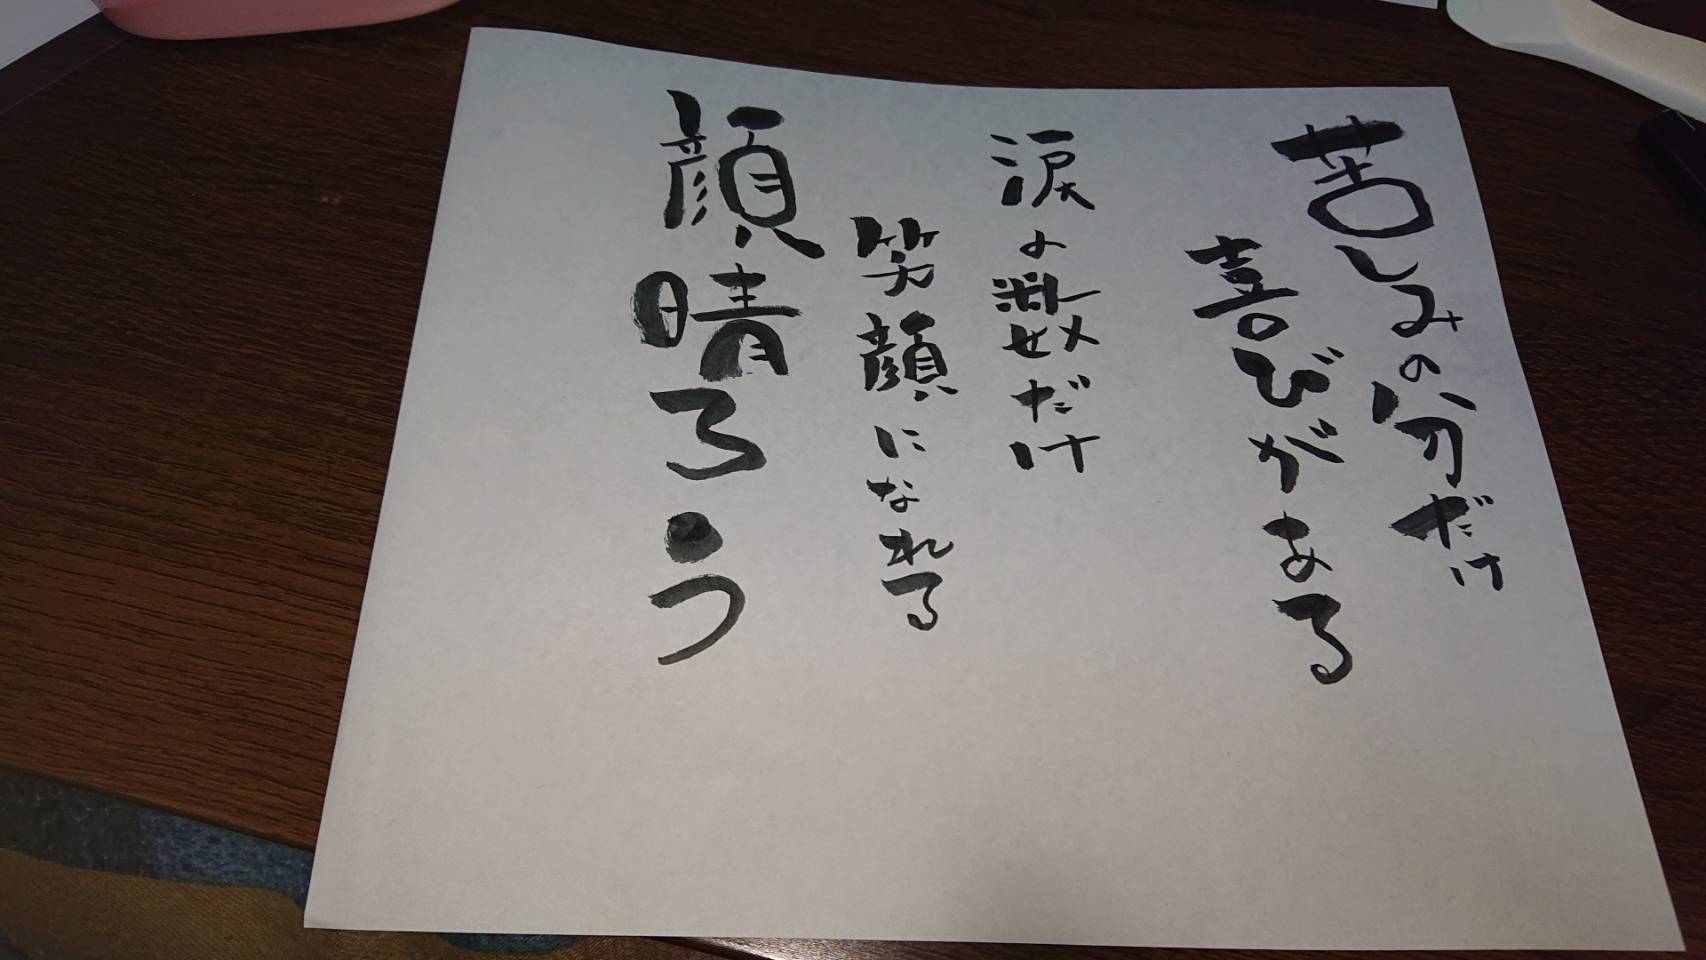 苦しみの分だけ
喜びがある
涙の数だけ
笑顔になれる
顔晴ろう